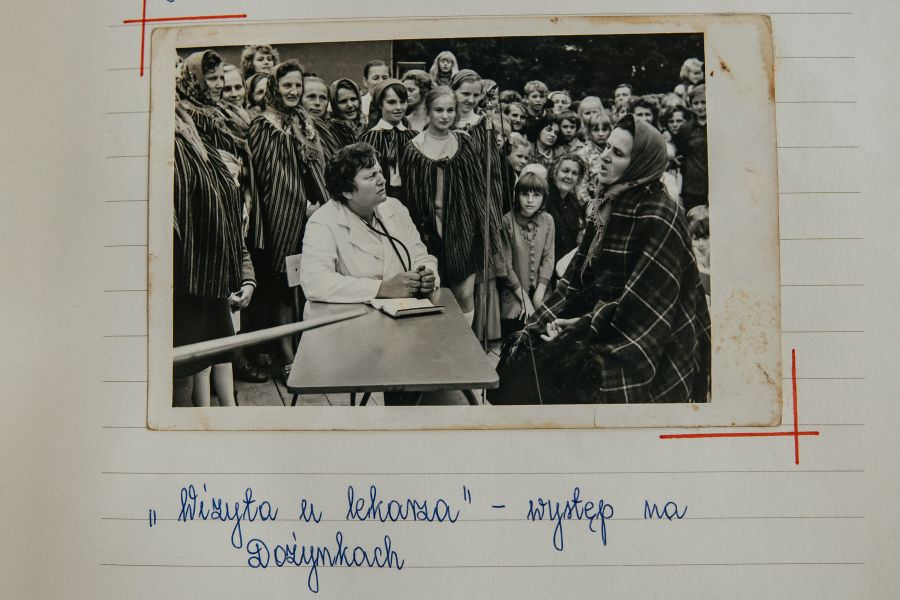 „Wizyta u lekarza" – występ na
Dożynkach